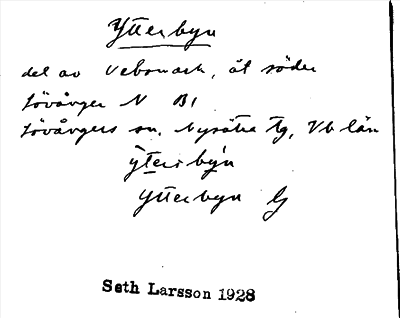 Ytterbyn
del av Vebomark, åt söder
Lövånger N B1
Lövångers sn, Nysätra tg, Vb län
ỳteṛbýn
Ytterbyn G
Seth Larsson 1928